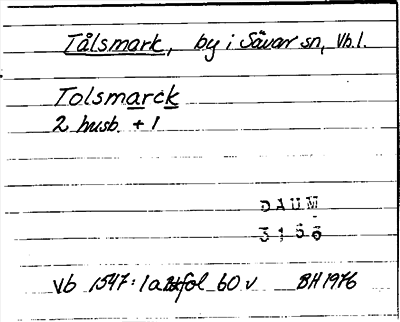 Tålsmark, by i Sävar sn, Vb.l.
Tolsmarck
2 husb. + 1
DAUM
3166
vb 1547:1a fol 60 v BH 1976